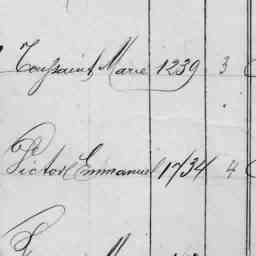 Toussaint Marie 1239 3
Victor Emmanuel 1734 4